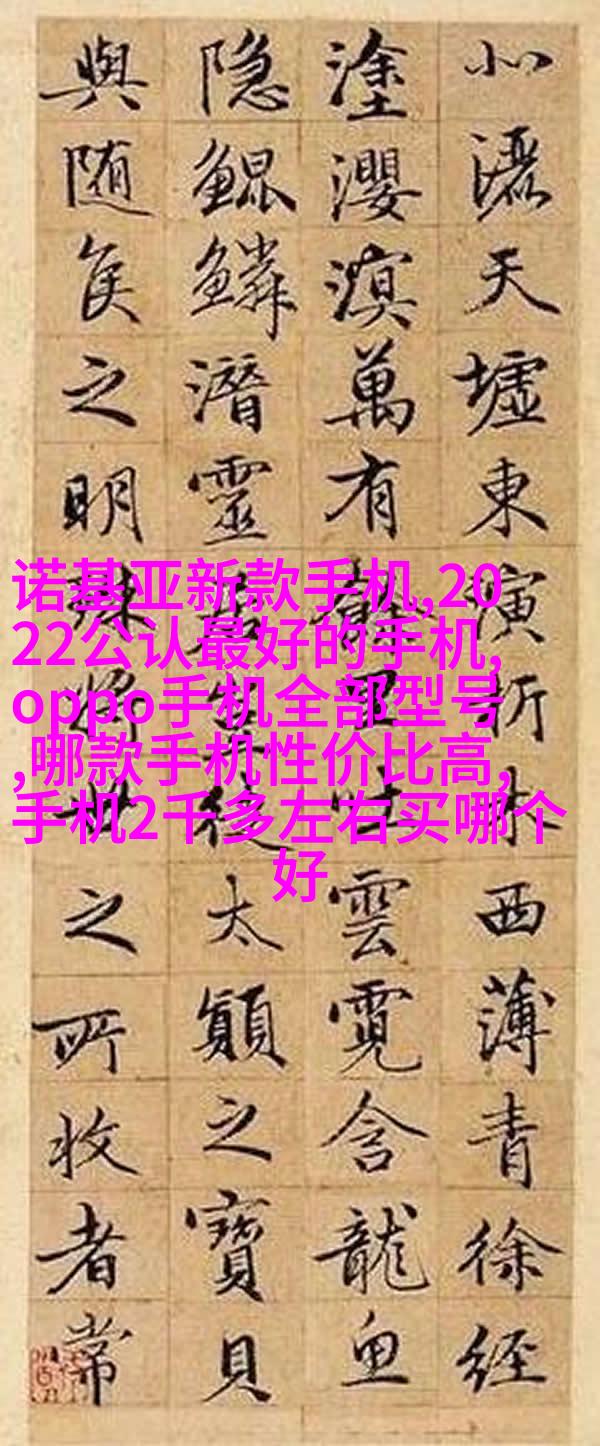 北灑天墟東演析木西薄青徐經
塗瀴溟萬有里吐雲霓含龍魚
隐鯤鱗潛靈居太顛之寶貝
與随侯之明珠將世之所收者常
诺基亚新款手机,20
22公认最好的手机,
oppo手机全部型号
,哪款手机性价比高,
手机2千多左右买哪个
好